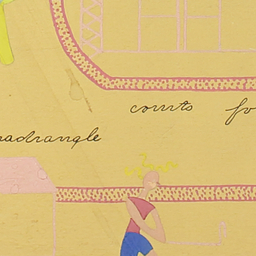 courts fo
uadrangle